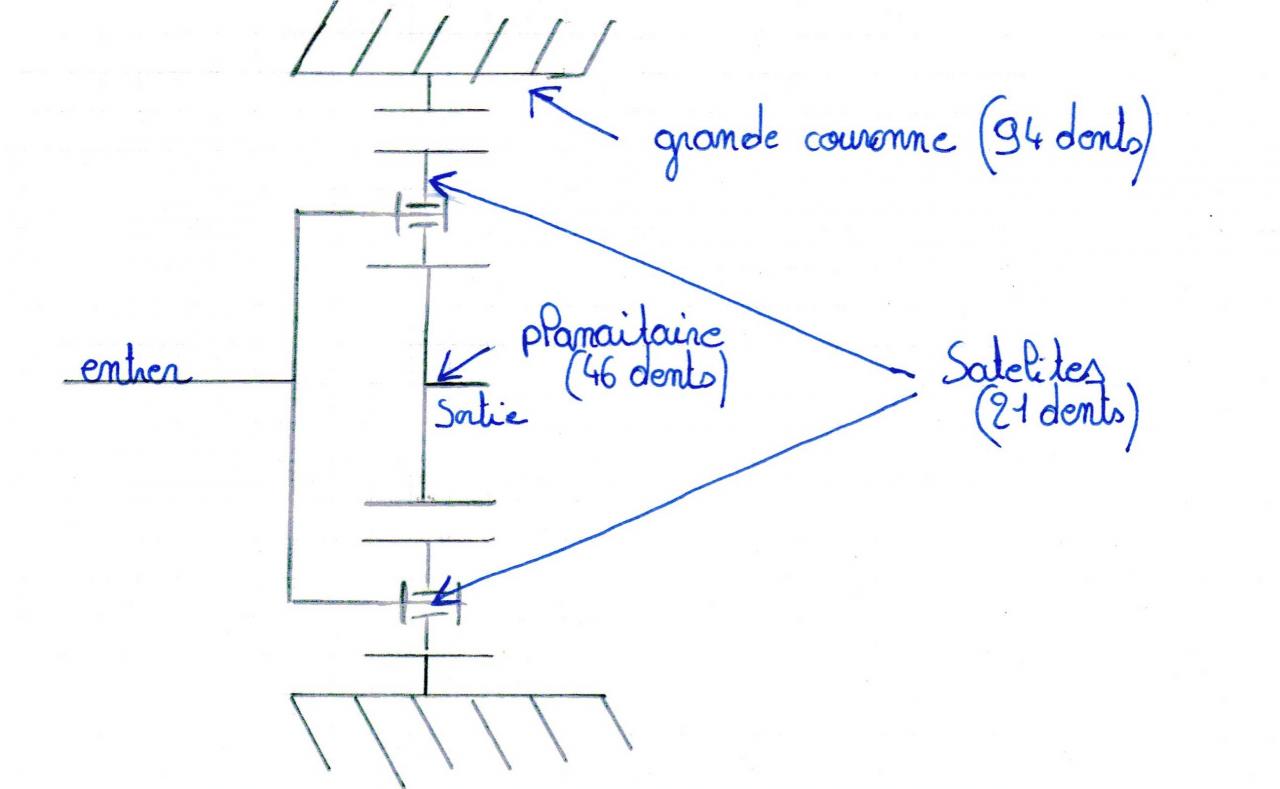 grande couronne (94 dents)
planaitaire
(46 dents)
entrer
Satelites
(21 dents)
Sortie